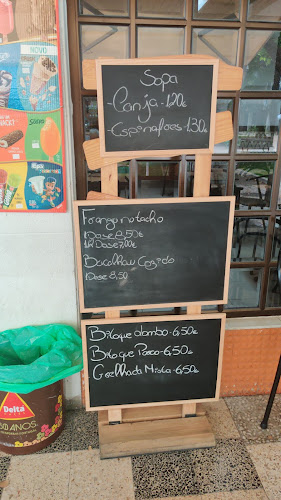 NOVO
Sopa
-Canja-1,20€
-Espinafres-1.30€
Frango no tacho
1 Dose 8,50€
1/2 Dose 7,00€
Bacalhau Cozido
1 Dose 8,50
Bitoque lombo-6,50€
Bitoque Porco-6,50€
Grelhada Mista-6,50€
Delta
ANOS